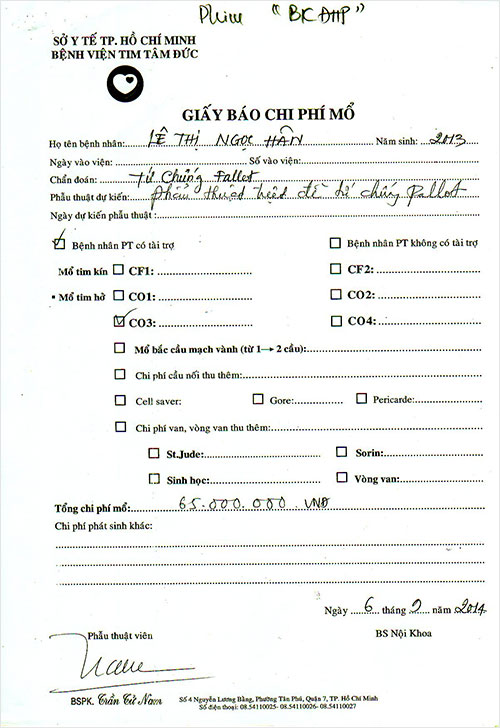 "BKĐHP"
SỞ Y TẾ TP. HỒ CHÍ MINH
BỆNH VIỆN TIM TÂM ĐỨC
GIẤY BÁO CHI PHÍ MỔ
Họ tên bệnh nhân: LÊ THỊ NGỌC HÂN Năm sinh: 2013
Ngày vào viện: Số vào viện:
Chẩn đoán: Tứ chứng Fallot
Phẫu thuật dự kiến: phẫu thuật triệt để tứ chứng Fallot
Ngày dự kiến phẫu thuật:
Bệnh nhân PT có tài trợ Bệnh nhân PT không có tài trợ
Mổ tim kín CF1: CF2:
▪ Mổ tim hở CO1: CO2:
CO3: CO4:
Mổ bắc cầu mạch vành (từ 1→ 2 cầu):
Chi phí cầu nối thu thêm:
Cell saver: Gore: Pericarde:
Chi phí van, vòng van thu thêm:
St.Jude: Sorin:
Sinh học: Vòng van:
Tổng chi phí mổ: 65.000.000 VNĐ
Chi phí phát sinh khác:
Ngày 6 tháng 2 năm 2014
Phẫu thuật viên BS Nội Khoa
BSPK. Trần Tử Nam
Số 4 Nguyễn Lương Bằng, Phường Tân Phú, Quận 7, TP. Hồ Chí Minh
Số điện thoại: 08.54110025- 08.54110026 - 08.54110027